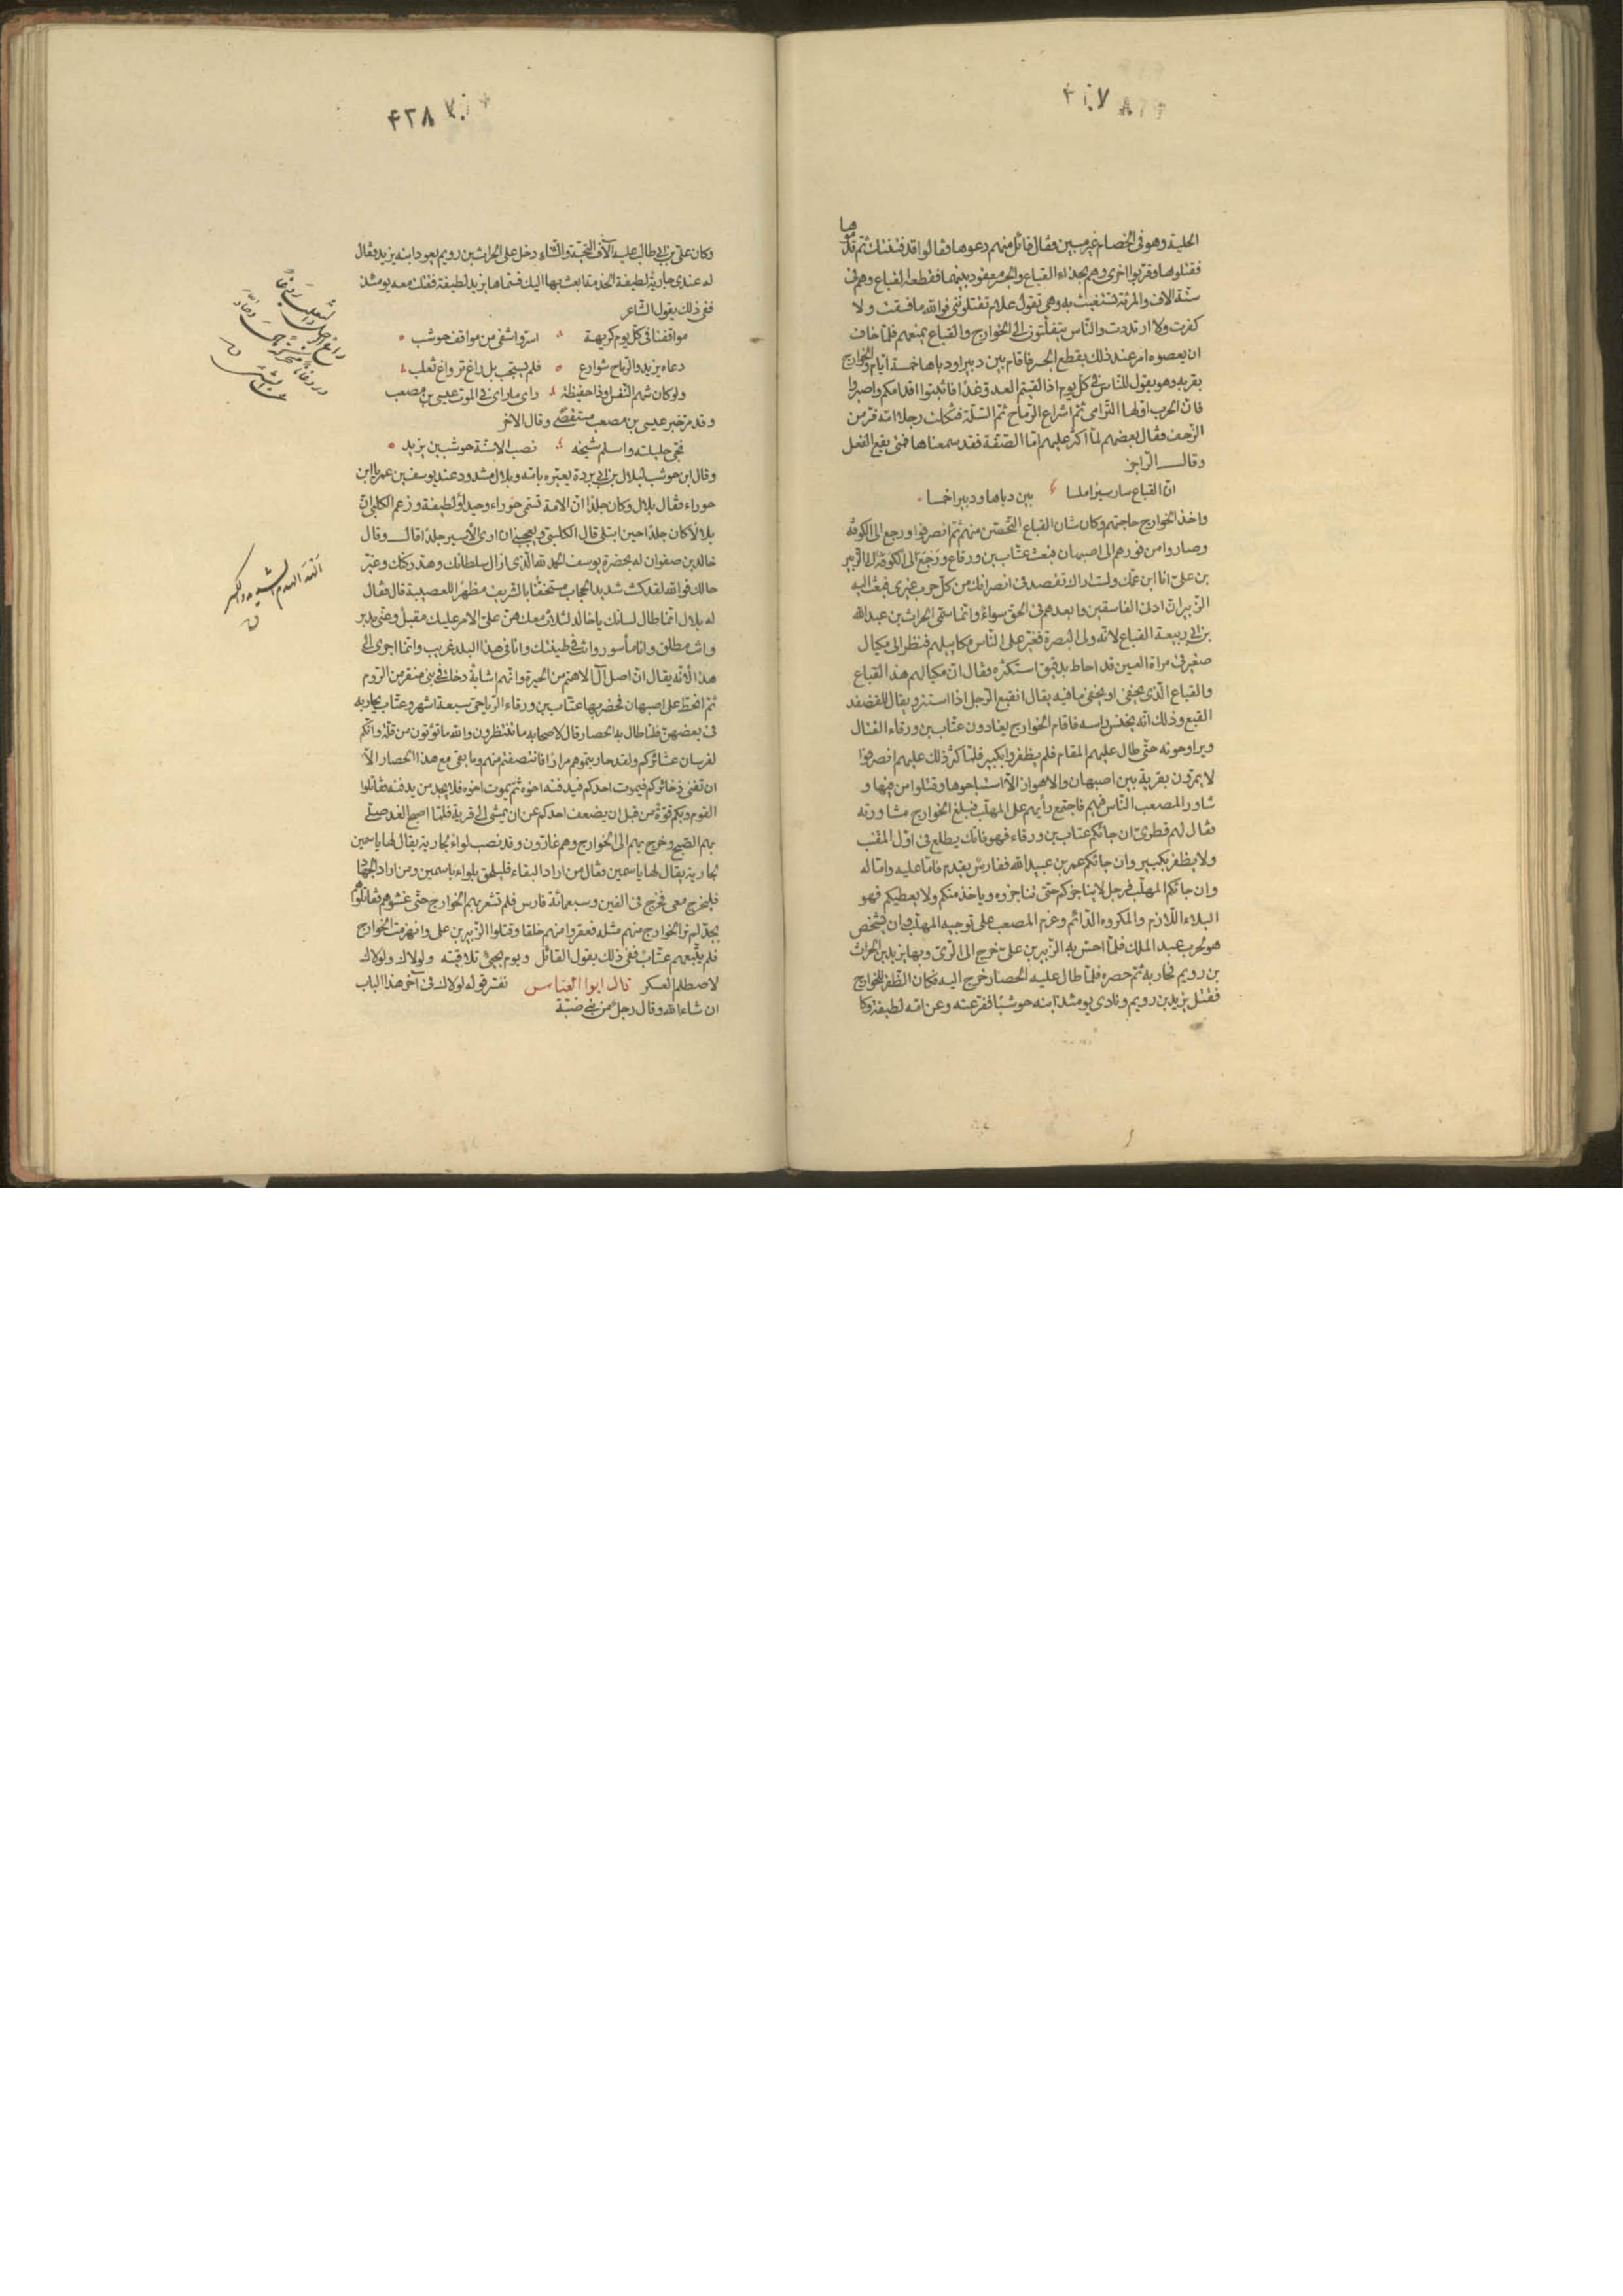 ۴۱۰۷
الحلية وهو فى الخصام غير مبين فقال قائل منهم دعوها فقالوا قد فتنتك ثم قدموها
فقتلوها وقربوا اخرى وهم بحذاء القباع والجسر معقود بينهما فقطعه القباع وهو فى
ستة الاف والمرئة تستغيث به وهى تقول علام تقتلوننى فوالله ما فسقت ولا
كفرت ولا ارتددت والناس يتفلتون الى الخوارج والقباع يمنعهم فلما خاف
ان يعصوه امر عند ذلك بقطع الجسر فاقام بين دبيرا ودباها خمسة ايام والخوارج
بقربه وهو يقول للناس فى كل يوم اذا لقيتم العدو غدا فاثبتوا اقدامكم واصبروا
فان الحرب اولها الترامى ثم اشراع الرماح ثم السلة فثكلت رجلا امه فر من
الزحف فقال بعضهم لما اكثر عليهم اما الصفة فقد سمعناها فمتى يقع الفعل
وقال الراجز
ان القباع سار سيرا ملسا بين دباها ودبيرا خمسا
واخذ الخوارج حاجتهم وكان شان القباع التحصن منهم ثم انصرفوا ورجع الى الكوفه
وصاروا من فورهم الى اصبهان فبعث عتاب بن ورقاء ورجع الى الكوفة الى الزبير
بن على انا ابن عمك ولست اراك تقصد فى انصرافك من كل حرب غيرى فبعث اليه
الزبير ان ادنى الفاسقين وابعدهم فى الحق سواء وانما سمى الحرث بن عبد الله
بن ابى ربيعة القباع لانه ولى البصرة فغير على الناس مكاييلهم فنظر الى مكيال
صغير فى مراة العين قد احاط بدقيق استكثره فقال ان مكيالهم هذا القباع
والقباع الذى يخفى او يخفى ما فيه يقال انقبع الرجل اذا استتر ويقال للقنفذ
القبع وذلك انه يخنس راسه فاقام الخوارج يغادون عتاب بن ورقاء القتال
ويراوحونه حتى طال عليهم المقام فلم يظفروا بكبير فلما كثر ذلك عليهم انصرفوا
لا يمرون بقرية بين اصبهان والاهواز الا استباحوها وقتلوا من فيها و
شاور المصعب الناس فيهم فاجتمع رأيهم على المهلب فبلغ الخوارج مشاورته
فقال لهم قطرى ان جائكم عتاب بن ورقاء فهو فاتك يطلع فى اول المقنب
ولا يظفر بكبير وان جائكم عمر بن عبيد الله ففارس يقدم فاما عليه واما له
وان جائكم المهلب فرجل لا يناجزكم حتى تناجزوه وياخذ منكم ولا يعطيكم فهو
البلاء اللازم والمكروه الدائم وعزم المصعب على توجيه المهلب وان يشخص
هو لحرب عبد الملك فلما احس به الزبير بن على خرج الى الرى وبها يزيد بن الحرث
بن رويم فحاربه ثم حصره فلما طال عليه الحصار خرج اليه فكان الظفر للخوارج
فقتل يزيد بن رويم ونادى يومئذ ابنه حوشبا ففر عنه وعن امه لطيفة وكا
۴۳۸
وكان على بن ابى طالب عليه آلاف التحية والثناء دخل على الحرث بن رويم يعود ابنه يزيد فقال
له عندى جارية لطيفة الخدمة ابعث بها اليك فسماها يزيد لطيفة فقتلت معه يومئذ
ففى ذلك يقول الشاعر
مواقفنا فى كل يوم كريهة اسر واشفى من مواقف حوشب
دعاه يزيد والرماح شوارع فلم يستجب بل راغ ترواغ ثعلب
ولو كان شهم النفس او ذا حفيظة راى ما راى فى الموت عيسى بن مصعب
وقد مر خبر عيسى بن مصعب مستقصى وقال الاخر
نجى حليلته واسلم شيخه نصب الاسنة حوشب بن يزيد
وقال ابن حوشب لبلال بن ابى بردة يعيره بامه وبلال مشدود عند يوسف بن عمر يا ابن
حوراء فقال بلال وكان جلدا ان الامة تسمى حوراء وجيداء ولطيفة وزعم الكلبى ان
بلالا كان جلدا حين ابتلى قال الكلبى ويعجبنى ان ارى الاسير جلدا قال وقال
خالد بن صفوان له بحضرة يوسف الحمد لله الذى ازال سلطانك وهد ركنك وغير
حالك فوالله لقد كنت شديد الحجاب مستخفا بالشريف مظهرا للعصبية قال فقال
له بلال انما طال لسانك يا خالد لثلاث معك هن على الامر عليك مقبل وعنى مدبر
وانت مطلق وانا مأسور وانت فى طينتك وانا فى هذا البلد غريب وانما اجرى الى
هذا لانه يقال ان اصل آل الاهتم من الحيرة وانهم اشابة دخلت فى بنى منقر من الروم
ثم انحط على اصبهان فحضر بها عتاب بن ورقاء الرياحى سبعة اشهر وعتاب يحاربه
فى بعضهن فلما طال به الحصار قال لاصحابه ما تنتظرون والله ما تؤتون من قلة وانكم
لفرسان عشائركم ولقد حاربتموهم مرارا فانتصفتم منهم وما بقى مع هذا الحصار الا
ان تفنى ذخائركم فيموت احدكم فيدفنه اخوه ثم يموت اخوه فلا يجد من يدفنه فقاتلوا
القوم وبكم قوة من قبل ان يضعف احدكم عن ان يمشى الى قرنه فلما اصبح الغد صلى
بهم الصبح وخرج بهم الى الخوارج وهم غارون وقد نصب لواء لجارية يقال لها ياسمين
لجارية يقال لها ياسمين فقال من اراد البقاء فليلحق بلواء ياسمين ومن اراد الجهاد
فليخرج معى فخرج فى الفين وسبعمائة فارس فلم تشعر بهم الخوارج حتى غشوهم فقاتلوهم
بجد لم ير الخوارج منهم مثله فعقروا منهم خلقا وقتلوا الزبير بن على وانهزمت الخوارج
فلم يتبعهم عتاب ففى ذلك يقول القائل ويوم بجى تلافيته ولولاك
لاصطلم العسكر قال ابو العباس نفسر قوله لولاك فى آخر هذا الباب
ان شاء الله وقال رجل من بنى ضبة